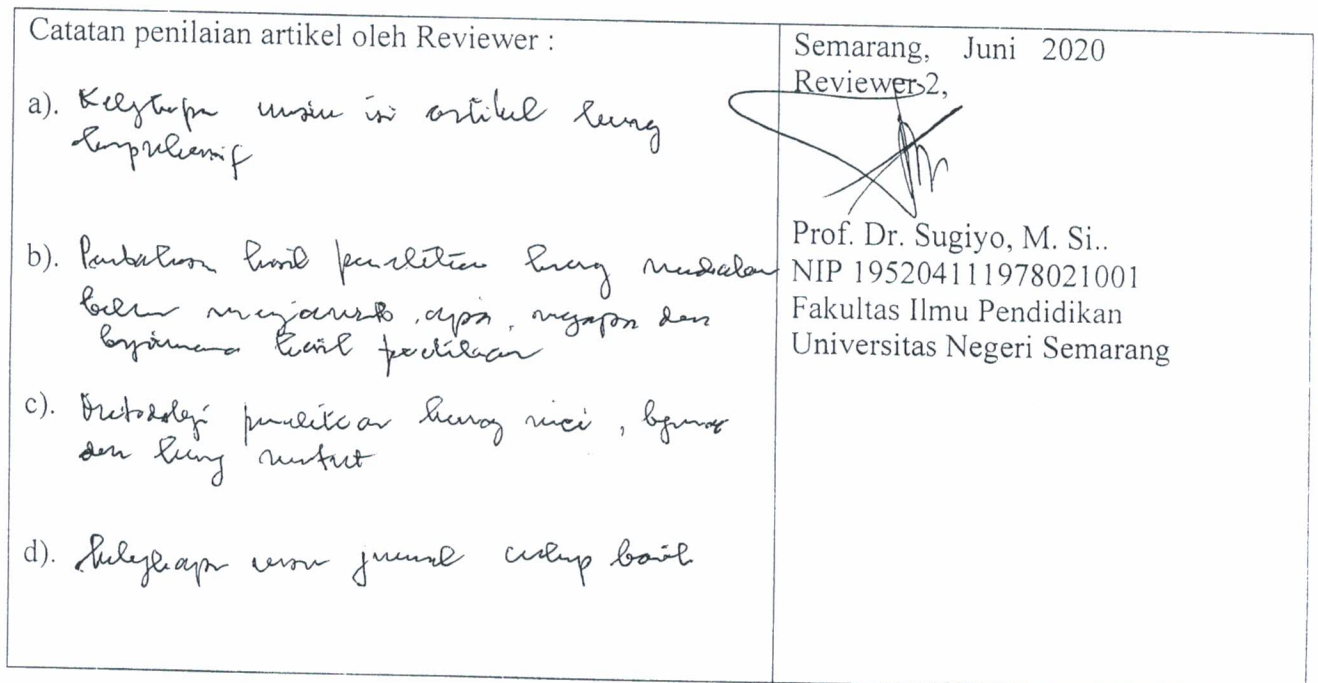 Catatan penilaian artikel oleh Reviewer :
a). Kelengkapan unsur isi artikel kurang
komprehensif
b). Pembahasan hasil penelitian kurang mendalam
belum menjawab apa, mengapa dan
bagaimana hasil penelitian
c). Metodologi penelitian kurang rinci,
dan kurang runtut
d). Kelengkapan unsur jurnal cukup baik
Semarang, Juni 2020
Reviewer 2,
Prof. Dr. Sugiyo, M. Si..
NIP 195204111978021001
Fakultas Ilmu Pendidikan
Universitas Negeri Semarang